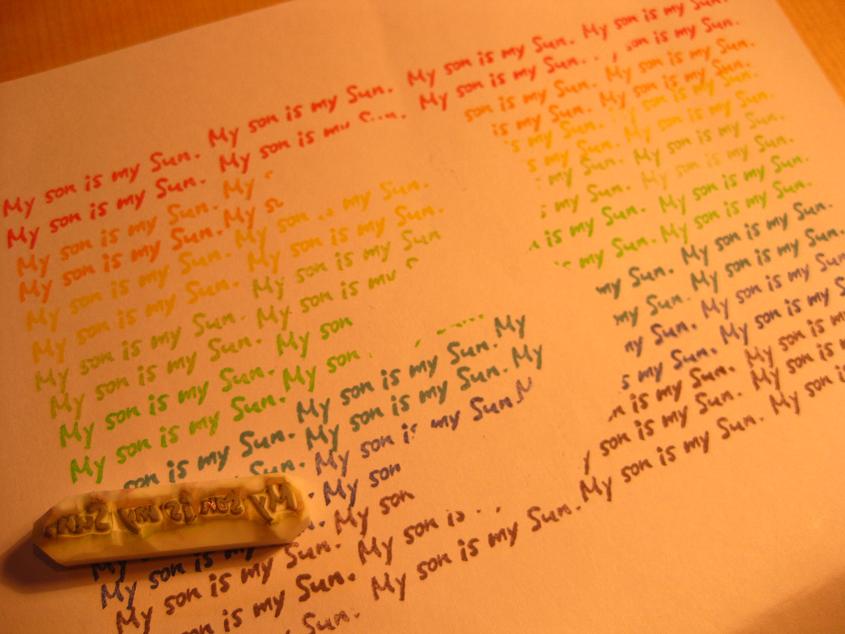 My son is my Sun. My son is my Sun. My son is my Sun. My son is my Sun.
My son is my Sun. My son is my Sun. My son is my Sun. son is my Sun.
My son is my Sun. My son is my Sun. My son is my Sun.
My son is my Sun. My so is my Sun. My son is my Sun.
My son is my Sun. My son is my Sun. is my Sun. My son is my Sun.
My son is my Sun. My son is my Sun. s my Sun. My son is my Sun.
My son is my Sun. My son is my Sun my Sun. My son is my Sun.
My son is my Sun. My son is my my Sun. My son is my Sun.
My son is my Sun. My son is my Sun. My son is my Sun.
My son is my Sun. My son my Sun. My son is my Sun.
son is my Sun. My son is my Sun. My my Sun. My son is my Sun.
Sun. My son is my Sun. My my Sun. My son is my Sun.
My son is my Sun. my Sun. My son is my Sun.
My son s my Sun. My son is my
My son is my Sun. My son is my Sun. My son is my
My son is my Sun. My son is son is my Sun. My son is
is my Sun. My son is my Sun. My son is my Sun. My son is
Sun.
My son is my Sun.